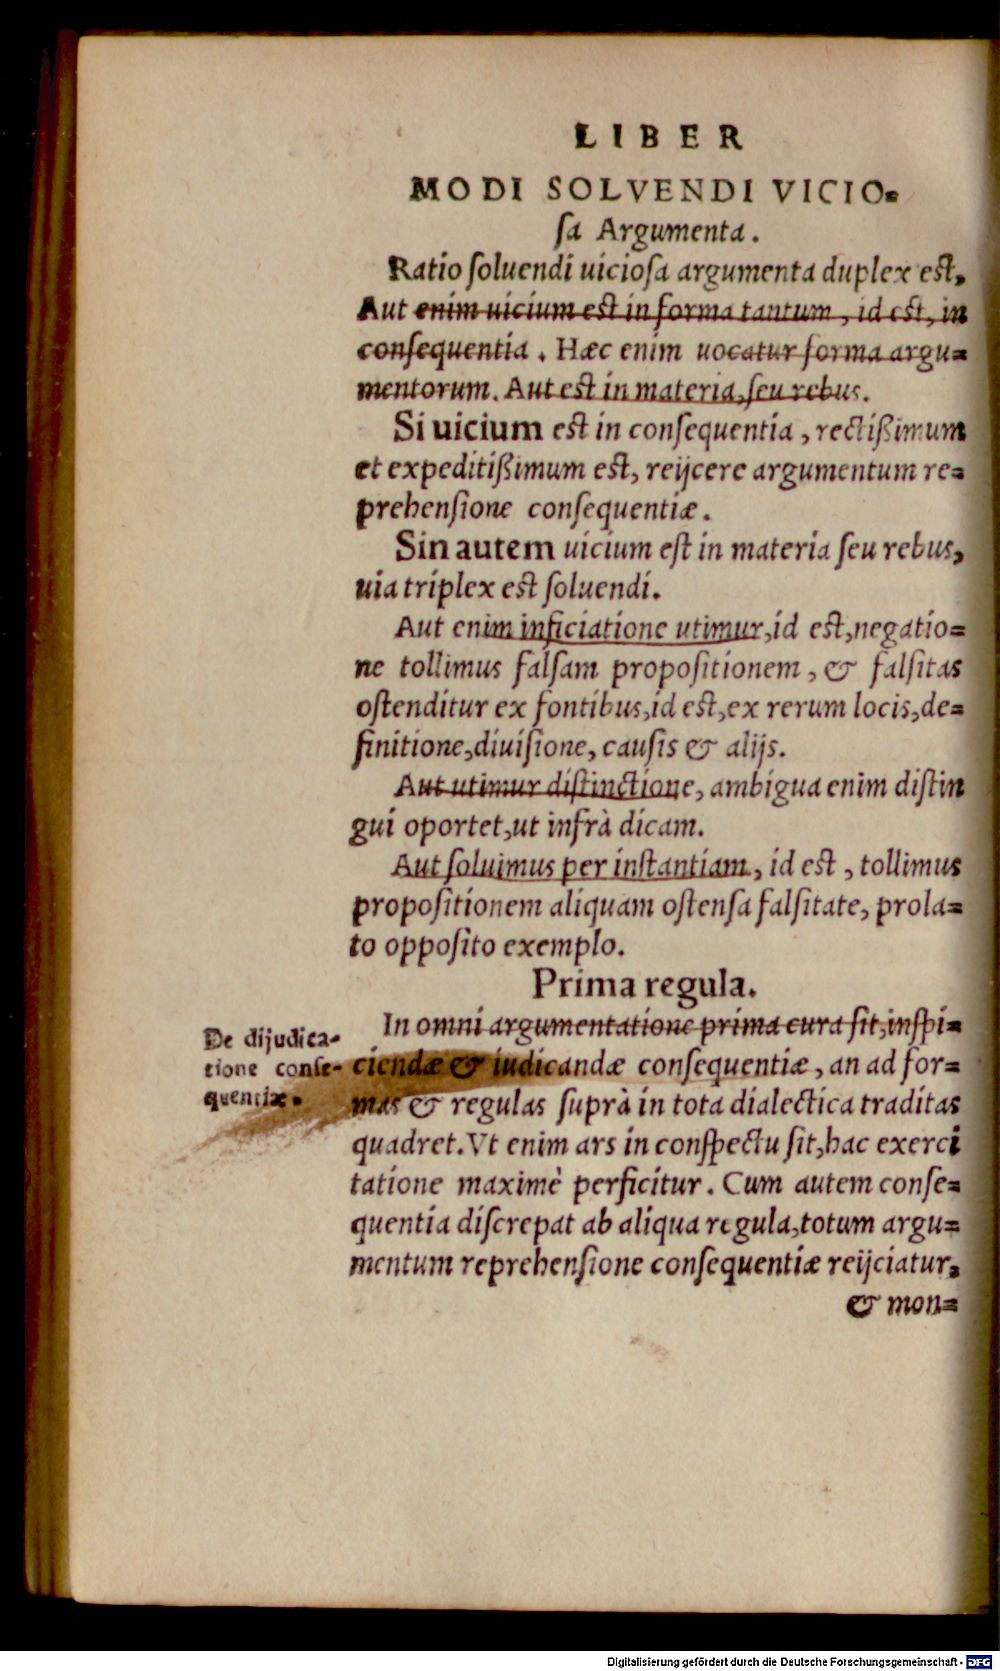 LIBER
MODI SOLVENDI VICIO-
sa Argumenta.
Ratio soluendi uiciosa argumenta duplex est,
Aut enim uicium est in forma tantum, id est, in
consequentia. Hæc enim uocatur forma argu-
mentorum. Aut est in materia, seu rebus.
Si uicium est in consequentia, rectißimum
et expeditißimum est, reijcere argumentum re-
prehensione consequentiæ.
Sin autem uicium est in materia seu rebus,
uia triplex est soluendi.
Aut enim inficiatione utimur, id est, negatio-
ne tollimus falsam propositionem, & falsitas
ostenditur ex fontibus, id est, ex rerum locis, de-
finitione, diuisione, causis & alijs.
Aut utimur distinctione, ambigua enim distin
gui oportet, ut infrà dicam.
Aut soluimus per instantiam, id est, tollimus
propositionem aliquam ostensa falsitate, prola-
to opposito exemplo.
Prima regula.
In omni argumentatione prima cura sit, inspi-
ciendæ & iudicandæ consequentiæ, an ad for-
mas & regulas suprà in tota dialectica traditas
quadret. Vt enim ars in conspectu sit, hac exerci
tatione maximè perficitur. Cum autem conse-
quentia discrepat ab aliqua regula, totum argu-
mentum reprehensione consequentiæ reijciatur,
& mon-
De dijudica-
tione conse-
quentiæ.
Digitalisierung gefördert durch die Deutsche Forschungsgemeinschaft - DFG